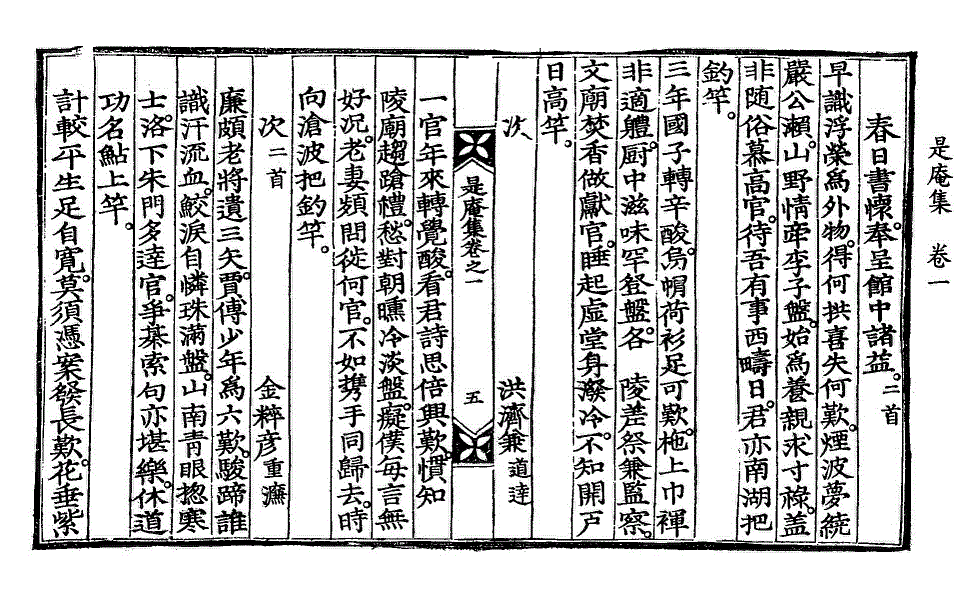 是庵集 卷一
春日書懷。奉呈館中諸益。二首
早識浮榮爲外物。得何拱喜失何歎。煙波夢繞
嚴公瀨。山野情牽李子盤。始爲養親求寸祿。蓋
非随俗慕高官。待吾有事西疇日。君亦南湖把
釣竿。
三年國子轉辛酸。烏帽荷衫足可歎。柂上巾褌
非適軆。厨中滋味罕登盤。各 陵差祭兼監察。
文廟焚香做獻官。睡起虛堂身潑冷。不知開戶
日高竿。
次 洪濟兼道達
是庵集卷之一 五
一官年來轉覺酸。看君詩思倍興歎。慣知
陵廟趨蹌禮。愁對朝曛冷淡盤。癡僕每言無
好况。老妻頻問徙何官。不如携手同歸去。時
向滄波把釣竿。
次二首 金粹彦重濂
廉頗老將遺三矢。賈傅少年爲六歎。駿蹄誰
識汗流血。鮫淚自憐珠滿盤。山南靑眼揔寒
士。洛下朱門多達官。爭棊索句亦堪樂。休道
功名鮎上竿。
計較平生足自寬。莫須憑案發長歎。花垂紫